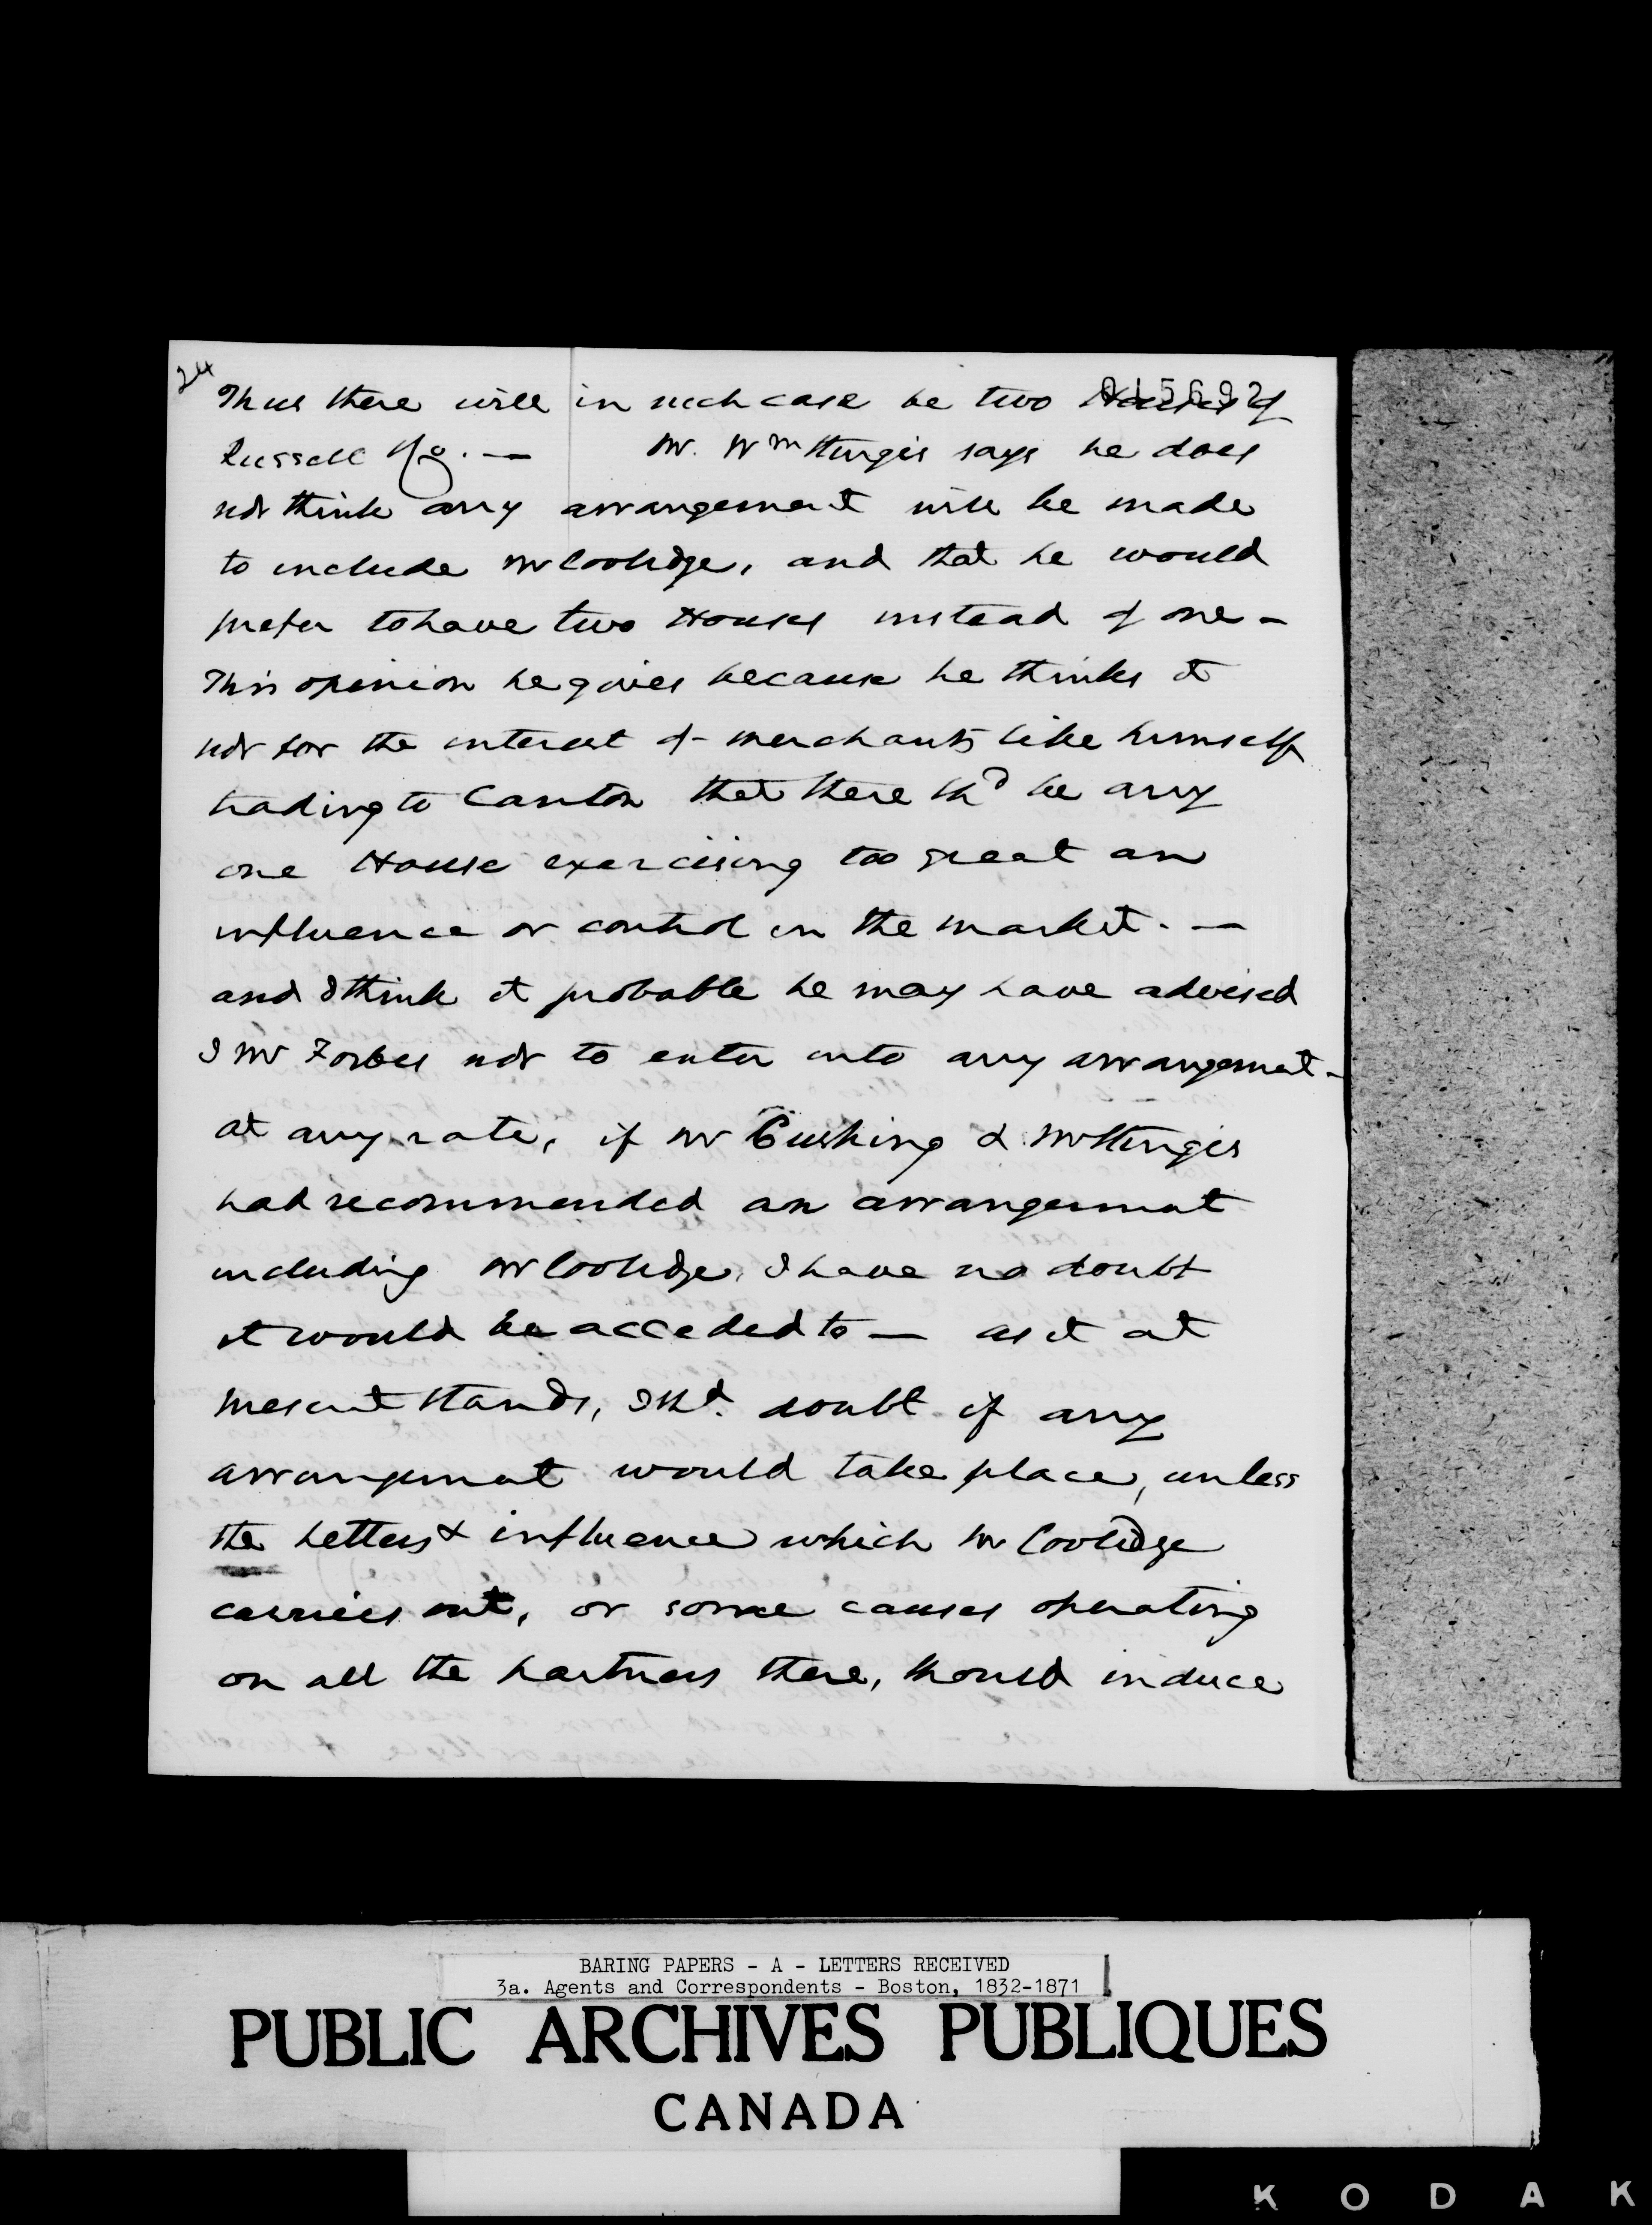 24
015692
Thus there will in such case be two Houses of
Russell & Co. — Mr. Wm Sturgis says he does
not think any arrangement will be made
to include Mr Coolidge, and that he would
prefer to have two Houses instead of one –
This opinion he gives because he thinks it
not for the interest of merchants like himself
trading to Canton that there shd be any
one House exercising too great an
influence or control in the market. —
and I think it probable he may have advised
Mr Forbes not to enter into any arrangement –
at any rate, if Mr Cushing & Mr Sturgis
had recommended an arrangement
including Mr Coolidge, I have no doubt
it would be acceded to — as it at
present stands, I shd. doubt if any
arrangement would take place, unless
the letters & influence which Mr Coolidge
carries out, or some causes operating
on all the partners there, should induce
BARING PAPERS - A - LETTERS RECEIVED
3a. Agents and Correspondents - Boston, 1832-1871
PUBLIC ARCHIVES PUBLIQUES
CANADA
KODAK